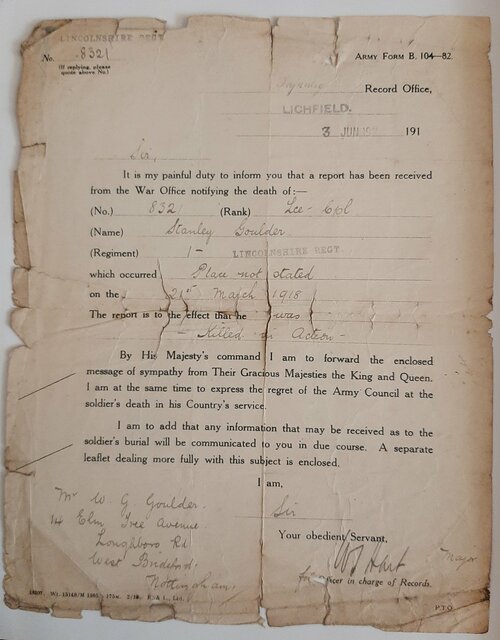 LINCOLNSHIRE REGT
No. 8321
(If replying, please
quote above No.)
ARMY FORM B. 104—82.
Infantry Record Office,
LICHFIELD.
3 JUN 191
Sir,
It is my painful duty to inform you that a report has been received
from the War Office notifying the death of:—
(No.) 8321 (Rank) Lce-Cpl
(Name) Stanley Goulder
(Regiment) 1- LINCOLNSHIRE REGT
which occurred Place not stated
on the 21st March 1918
The report is to the effect that he was
- Killed in Action -
By His Majesty's command I am to forward the enclosed
message of sympathy from Their Gracious Majesties the King and Queen.
I am at the same time to express the regret of the Army Council at the
soldier's death in his Country's service.
I am to add that any information that may be received as to the
soldier's burial will be communicated to you in due course. A separate
leaflet dealing more fully with this subject is enclosed.
I am,
Sir
Your obedient Servant,
Major
for Officer in charge of Records.
Mr W. G Goulder.
14 Elm Tree Avenue.
Loughboro Rd
West Bridford.
Nottingham.
P.T.O.